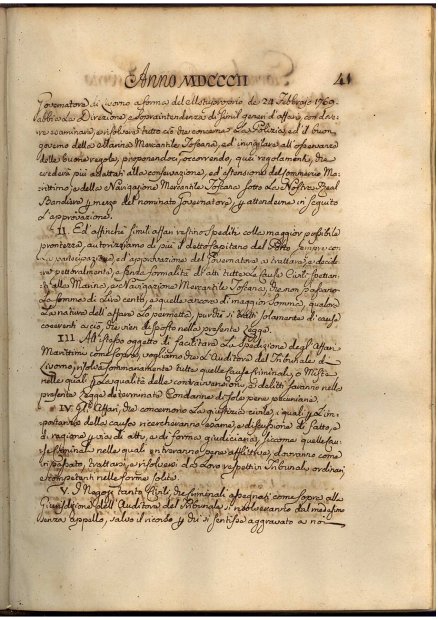 Anno MDCCCII 41
Governatore di Livorno a forma del Motuproprio de 24 Febbraio 1769.
abbia la Direzione, e Sopraintendenza di simil generi d'affari, con dove-
re esaminare, e risolvere tutto ciò che concerne la Polizia, ed il buon
governo della Marina Mercantile Toscana, ed invigilare all'osservanza
delle buone regole, proponendoci, occorrendo, quei regolamenti, che
crederà più adattati alla conservazione, ed estensione del commercio Ma-
rittimo, e della Navigazione Mercantile Toscana sotto la Nostra Real
Bandiera p. mezzo del nominato Governatore, p. attenderne in seguito
l'approvazione.
II. Ed affinchè simili affari restino spediti colla maggior possibile
prontezza, autorizziamo di più il detto Capitano del Porto sempre con
la partecipazione, ed approvazione del Governatore a trattare, e decide-
re pettoralmente, e senza formalità di atti tutte le Cause Civili spettan-
ti alla Marina, e Navigazione Mercantile Toscana, che non passano
la somma di Lire cento, e quelle ancora di maggior somma, qualora
la natura dell'affare lo permetta, purchè si tratti solamente di cause
coerenti a ciò, che vien disposto nella presente Legge.
III. All'istesso oggetto di facilitare la spedizione degl'Affari
Marittimi come sopra, vogliamo che l'Auditore del Tribunale di
Livorno, risolva sommariamente tutte quelle cause Criminali, o Miste
nelle quali p. la qualità delle contravvenzioni, e delitti saranno nella
presente Legge determinate Condanne di sole pene pecuniarie.
IV. Gl'Affari, che concernono la giustizia civile, i quali p. l'im-
portanza della causa ricercheranno esame, e discussione di fatto, e
di ragione p. via di atti, e di forma giudiciaria, siccome quelle cau-
se Criminali nelle quali entreranno pene afflittive, dovranno come
in passato, trattarsi, e risolversi da loro respettivi Tribunali ordinarj,
e competenti nelle forme solite.
V. I Negozj tanto Civili, che Criminali assegnati come sopra alla
Giurisdizione dell'Auditore del Tribunale si risolveranno dal medesimo
senza appello, salvo il ricorso p. chi si sentisse aggravato a noi